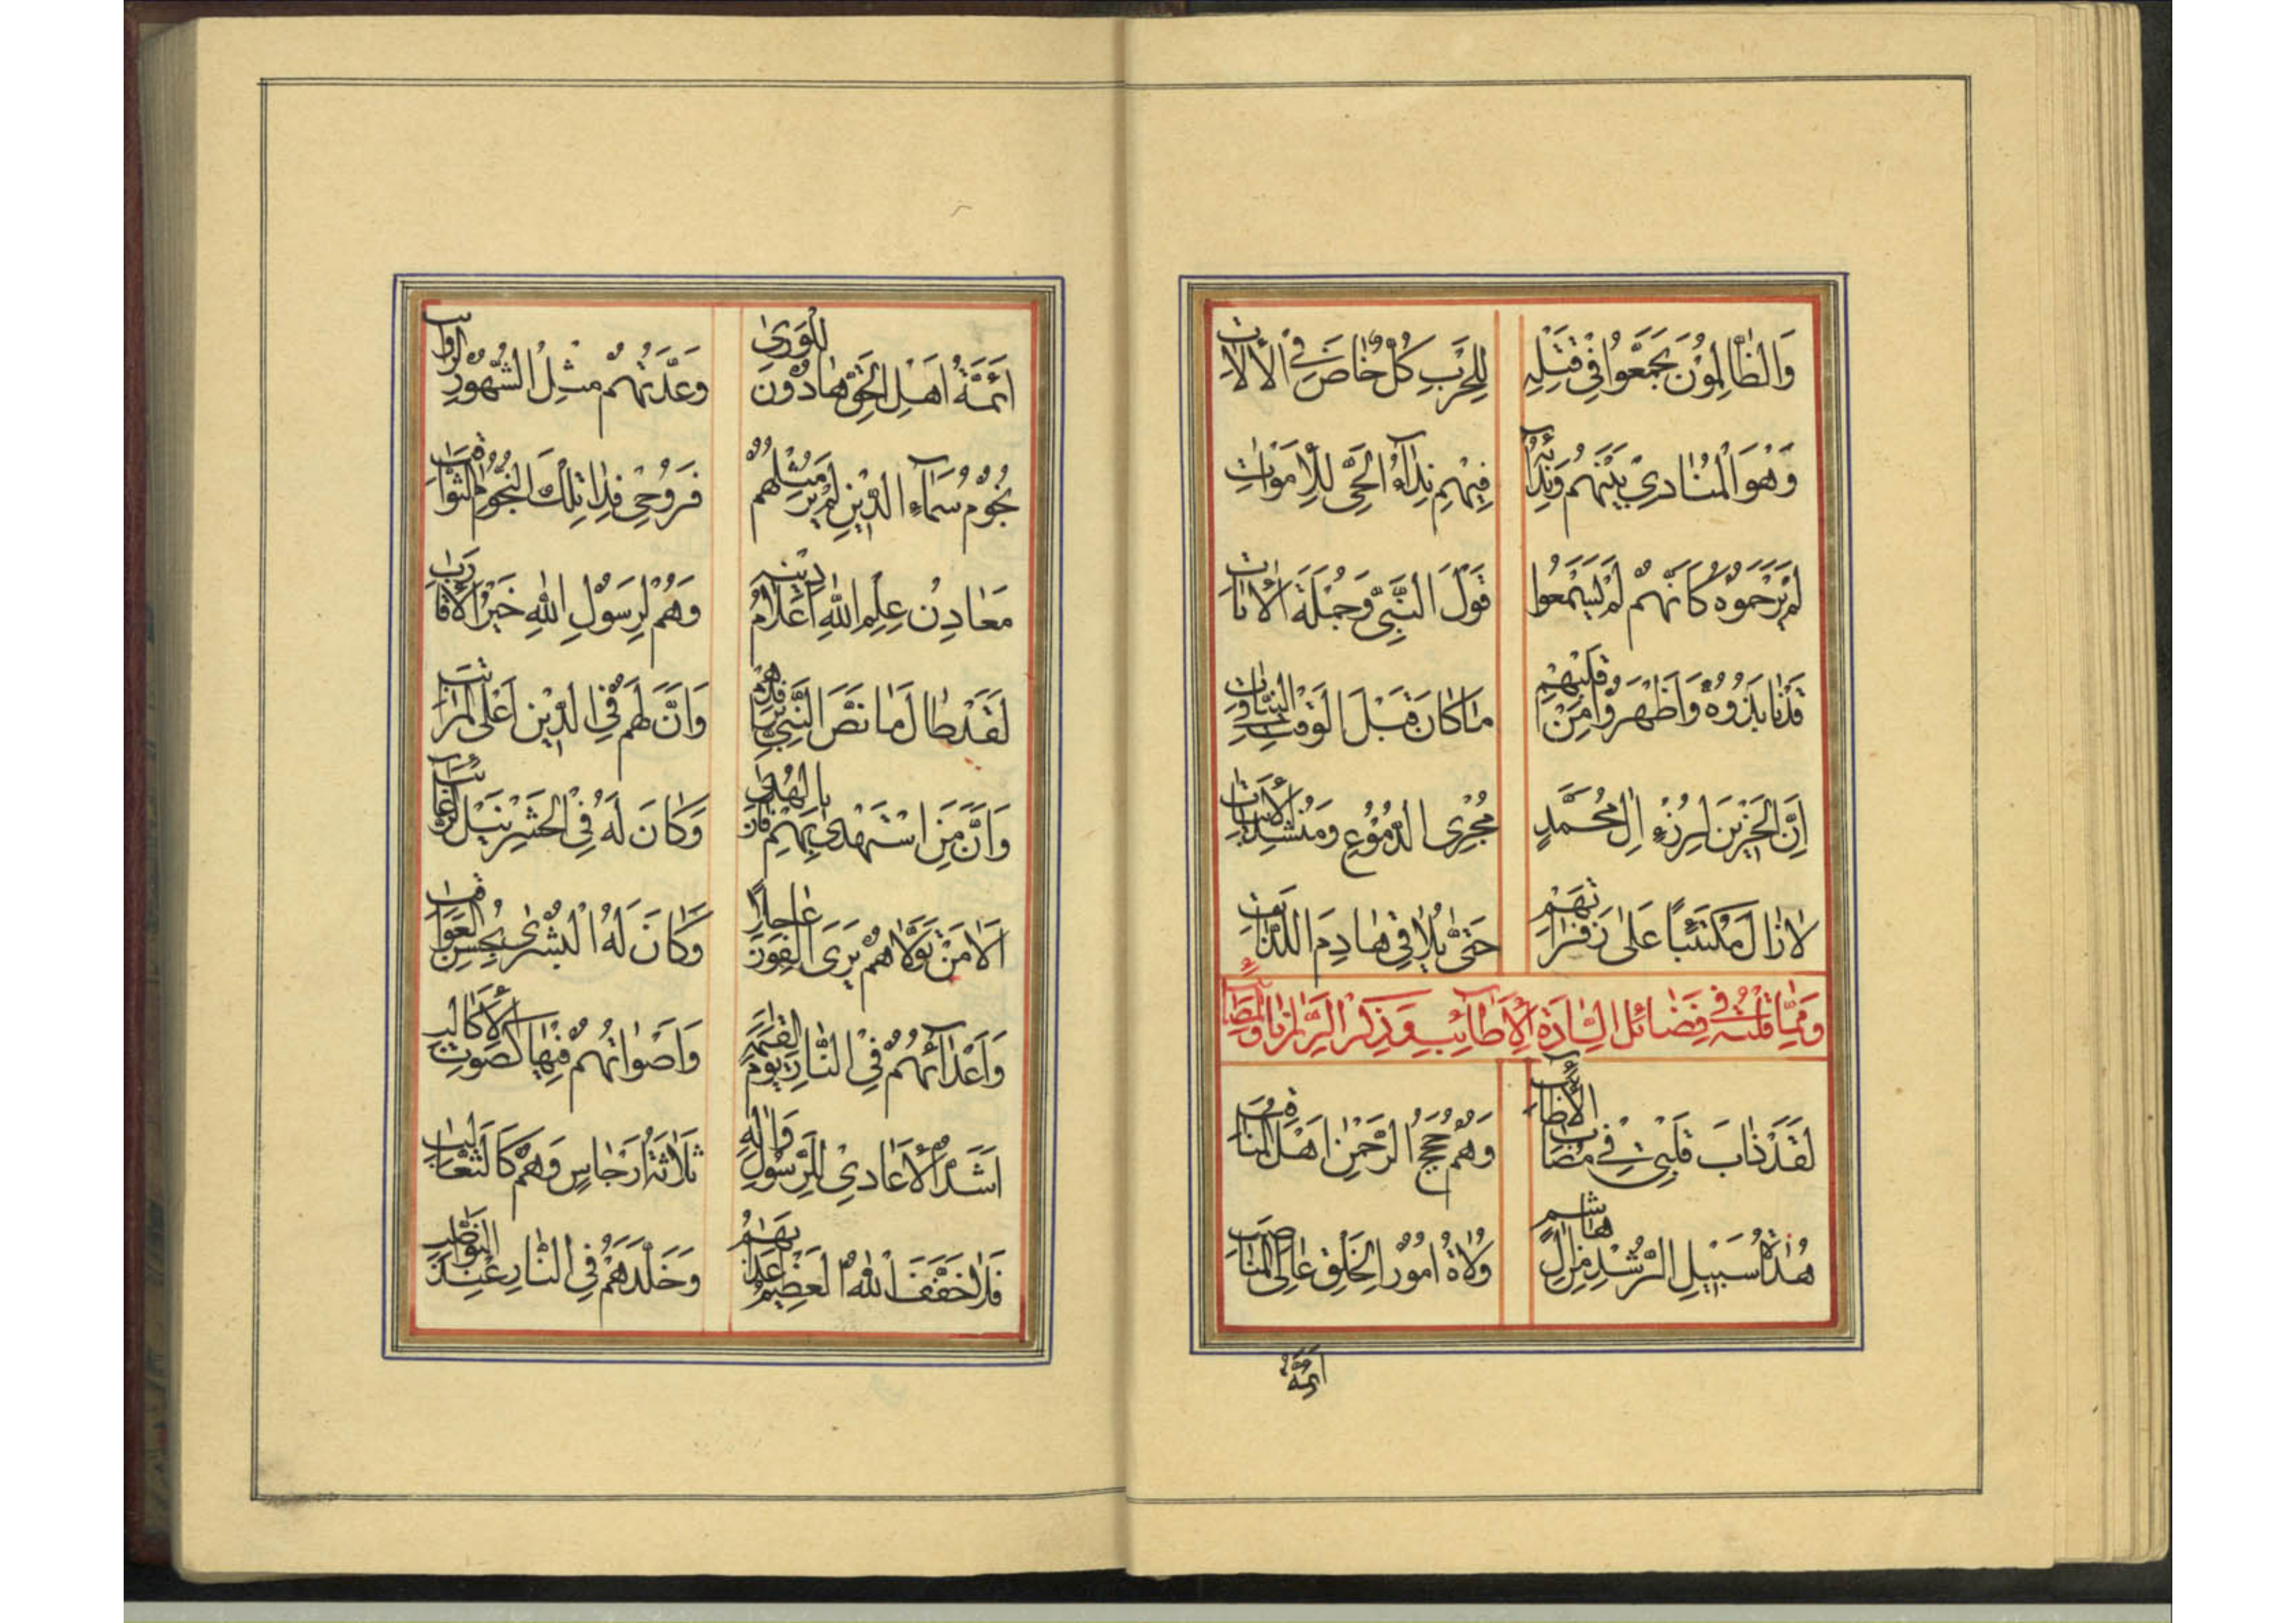 وَالظَّالِمُونَ تَجَمَّعُوا فِي قَتْلِهِ لِلْحَرْبِ كُلٌّ خَاضَ فِي الْآلَاتِ
وَهُوَ الْمُنَادِي بَيْنَهُمْ وَنِدَائُهُ فِيهِمْ نِدَاءُ الْحَيِّ لِلْأَمْوَاتِ
لَمْ يَرْحَمُوهُ كَأَنَّهُمْ لَمْ يَسْمَعُوا قَوْلَ النَّبِيِّ وَجُمْلَةَ الْآيَاتِ
قَدْ نَابَذُوهُ وَأَظْهَرُوا مِنْ قَلْبِهِمْ مَا كَانَ قَبْلَ الْوَقْتِ فِي النِّيَّاتِ
إِنَّ الْحَزِينَ لِرُزْءِ آلِ مُحَمَّدٍ مُجْرِي الدُّمُوعِ وَمُنْشِدُ الْأَبْيَاتِ
لَا زَالَ مُكْتَئِبًا عَلَى زَفَرَاتِهِمْ حَتَّى يُلَاقِيَ هَادِمَ اللَّذَّاتِ
وَمِمَّا قُلْتُهُ فِي فَضَائِلِ السَّادَةِ الْأَطَائِبِ وَذِكْرِ الرَّزَايَا وَالْمَصَائِبِ
لَقَدْ ذَابَ قَلْبِي فِي مُصَابِ الْأَطَائِبِ وَهُمْ حُجَجُ الرَّحْمٰنِ أَهْلُ الْمَنَاقِبِ
هُدَاةُ سَبِيلِ الرُّشْدِ مِنْ آلِ هَاشِمٍ وُلَاةُ أُمُورِ الْخَلْقِ عَالِي الْمَنَاصِبِ
أَئِمَّةُ
أَئِمَّةُ أَهْلِ الْحَقِّ هَادُونَ لِلْوَرَى وَعَدَّتُهُمْ مِثْلُ الشُّهُورِ
نُجُومُ سَمَاءِ الدِّينِ لَمْ يُرَ مِثْلُهُمْ فَرُوحِي فِدَا تِلْكَ النُّجُومِ الثَّوَاقِبِ
مَعَادِنُ عِلْمِ اللّٰهِ أَعْلَامُ دِينِهِ وَهُمْ لِرَسُولِ اللّٰهِ خَيْرُ الْأَقَارِبِ
لَقَدْ طَالَمَا نَصَّ النَّبِيُّ بِفَضْلِهِمْ وَأَنَّ لَهُمْ فِي الدِّينِ أَعْلَى الْمَرَاتِبِ
وَأَنَّ مَنِ اسْتَهْدَى بِهِمْ فَازَ بِالْهُدَى وَكَانَ لَهُ فِي الْحَشْرِ نَيْلُ الرَّغَائِبِ
أَلَا مَنْ تَوَلَّاهُمْ يَرَى الْفَوْزَ عَاجِلًا وَكَانَ لَهُ الْبُشْرَى بِحُسْنِ الْعَوَاقِبِ
وَأَعْدَائُهُمْ فِي النَّارِ يَوْمَ الْقِيٰمَةِ وَأَصْوَاتُهُمْ فِيهَا كَصَوْتِ الْأَكَالِبِ
أَشَدُّ الْأَعَادِي لِلرَّسُولِ وَآلِهِ ثَلَاثَةُ أَرْجَاسٍ وَهُمْ كَالثَّعَالِبِ
فَلَا خَفَّفَ اللّٰهُ الْعَظِيمُ عَذَابَهُمْ وَخَلَّدَهُمْ فِي النَّارِ عِنْدَ النَّوَاصِبِ